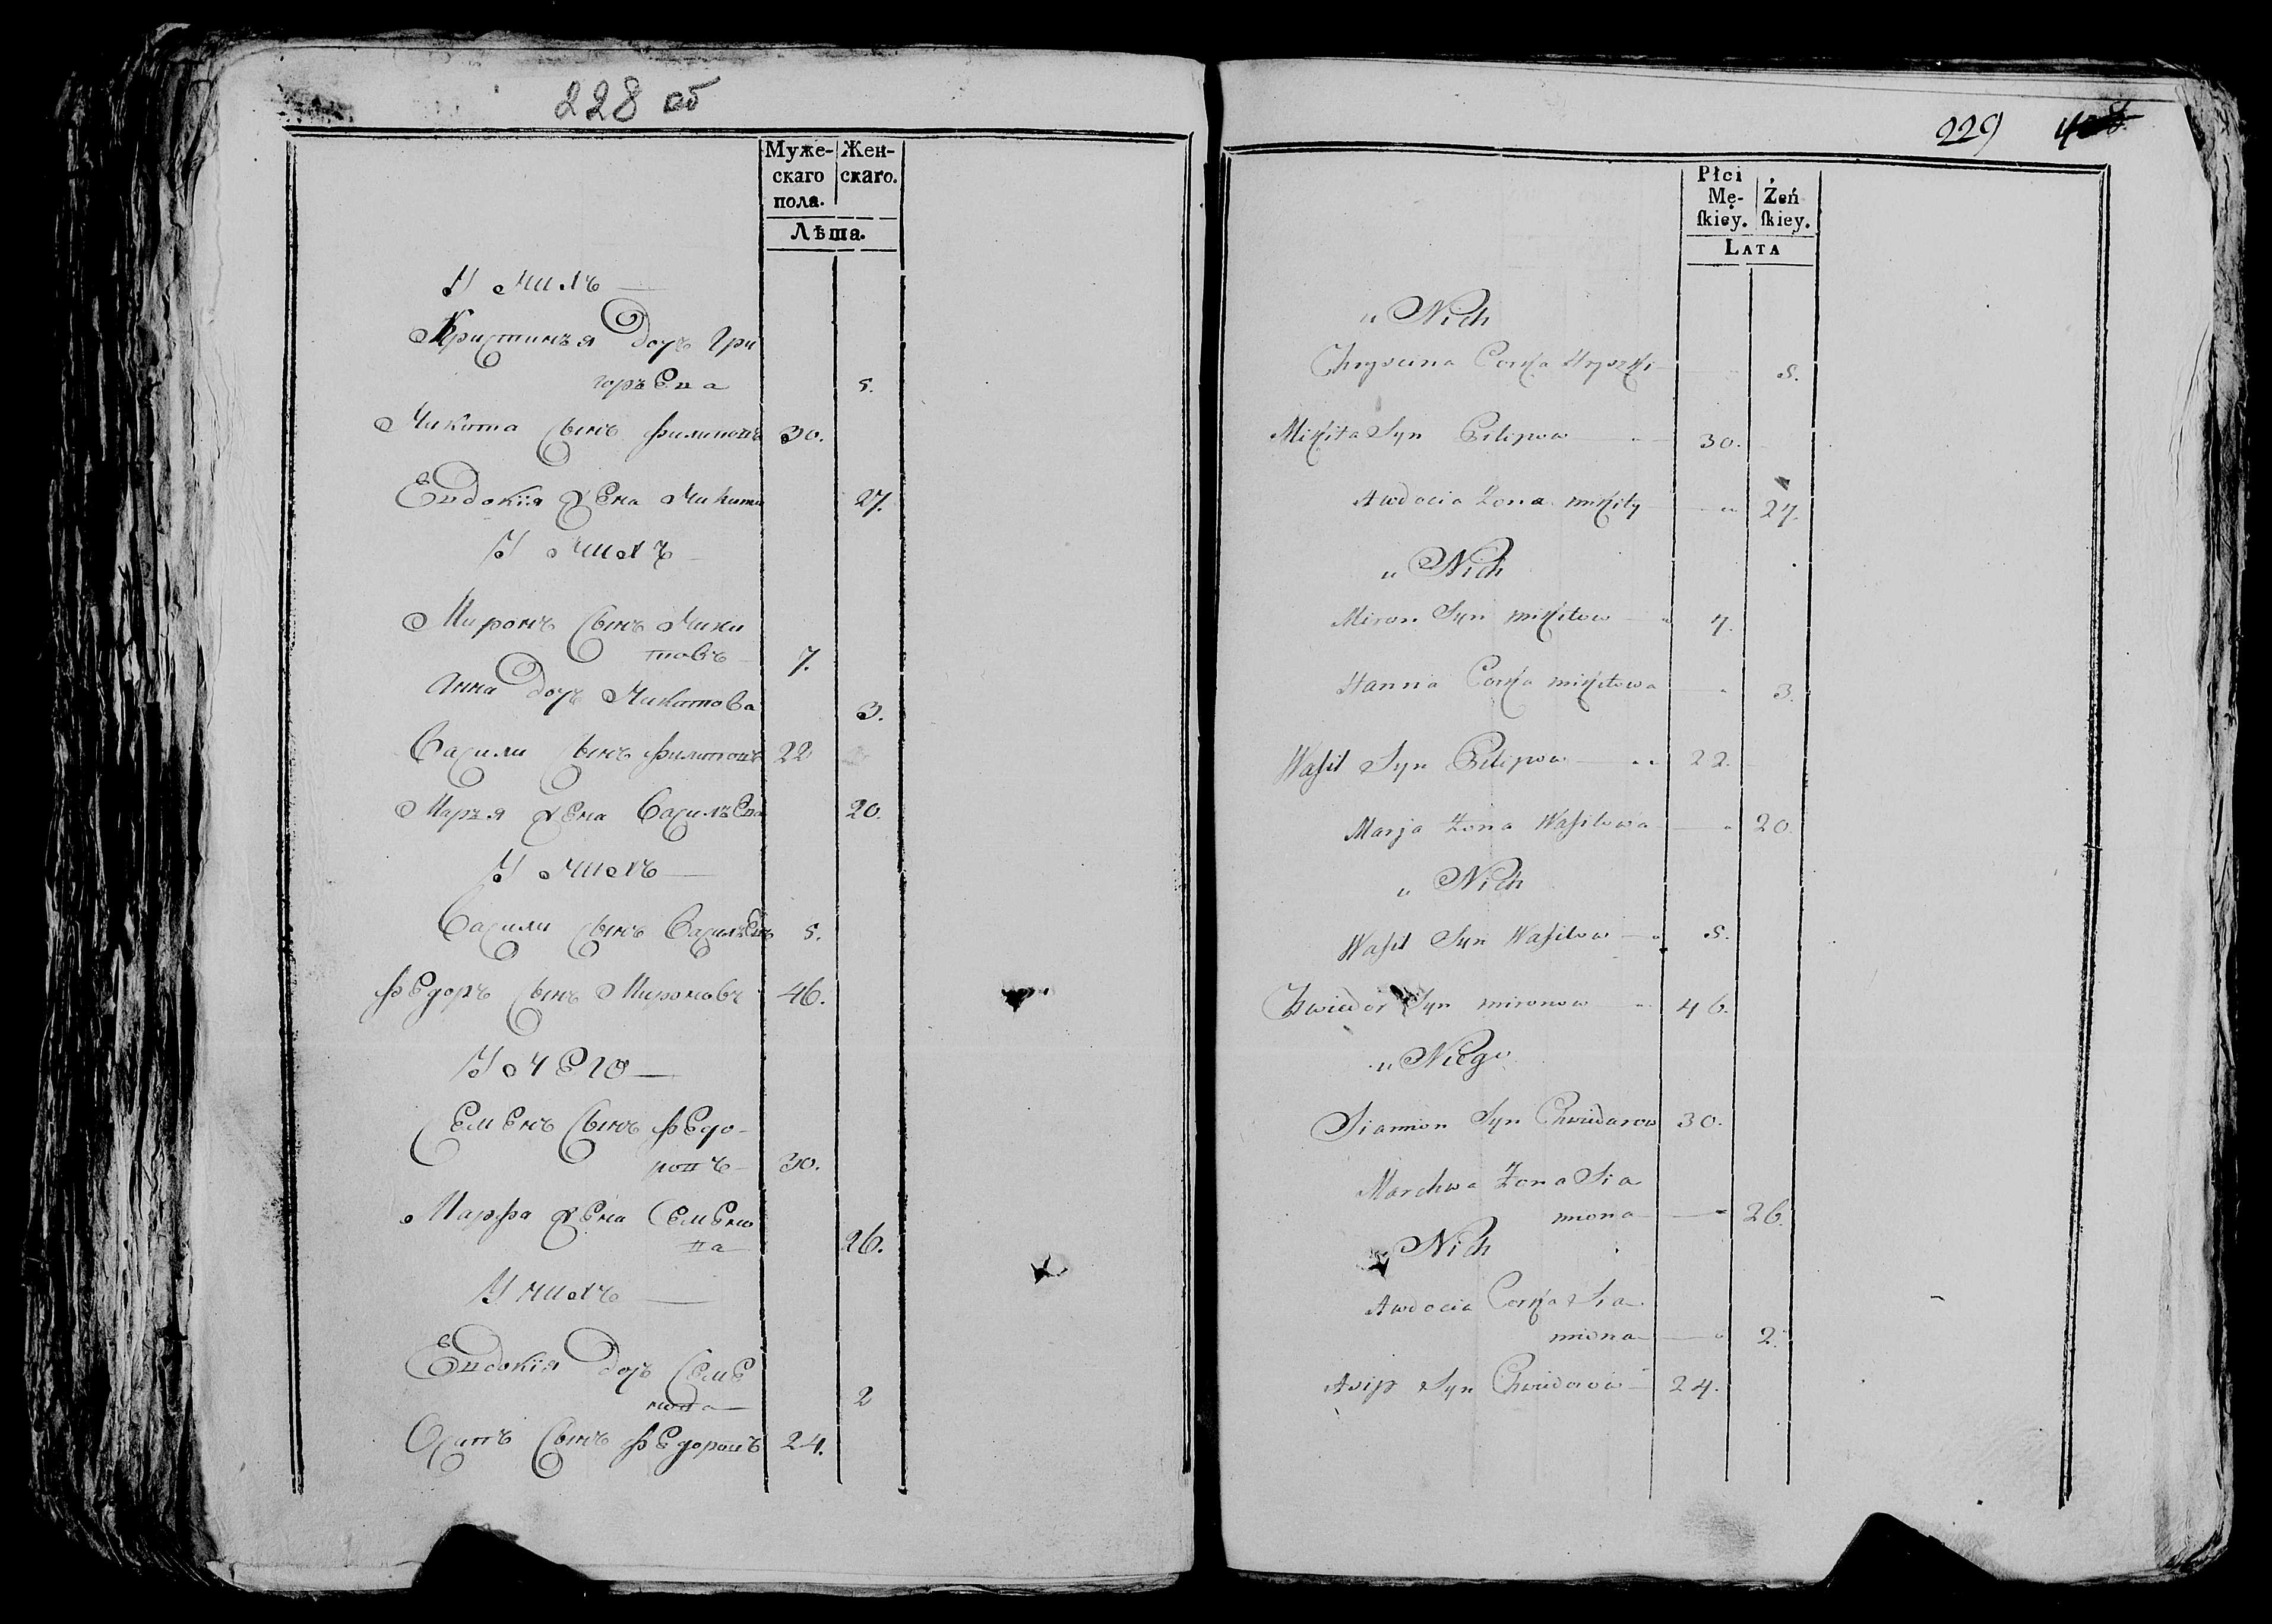 228 об
Муже- Жен-
скаго скаго.
пола.
Лѣта.
У нихъ —
Кристинъя дочь Гри
горъева 5.
Никита сынъ филиповъ 30.
Евдокія жена Никиты 27.
У нихъ —
Миронъ сынъ Ники
товъ — 7.
Анна дочь Никитова 3.
Василй сынъ филиповъ 22
Марья жена Василъева 20.
У нихъ —
Василй сынъ Василъевъ 5.
федоръ сынъ Мироновъ 46.
У Него —
Семенъ сынъ федо-
ровъ — 30.
Марфа жена Семено
ва — 26.
У нихъ —
Евдокія дочь Семе
нова — 2
Осипъ сынъ федоровъ 24.
229
Płci
Mę- Żeń
skiey. skiey.
LATA
u Nich
Chryscina Corka Hryszki — 5.
Mikita Syn Pilipow — 30.
Awdocia Zona mikity — 27.
u Nich
Miron Syn mikitow — 7.
Hanna Corka mikitowa — 3.
Wasil Syn Pilipow — 22.
Marja Zona Wasilowa — 20.
u Nich
Wasil Syn Wasilow — 5.
Chwiedor Syn mironow — 46.
u Niego
Siamion Syn Chwiedorow 30.
Marchwa Zona Sia
miona — 26.
u Nich
Awdocia Corka Sia
miona — 2.
Asip Syn Chwiedorow — 24.